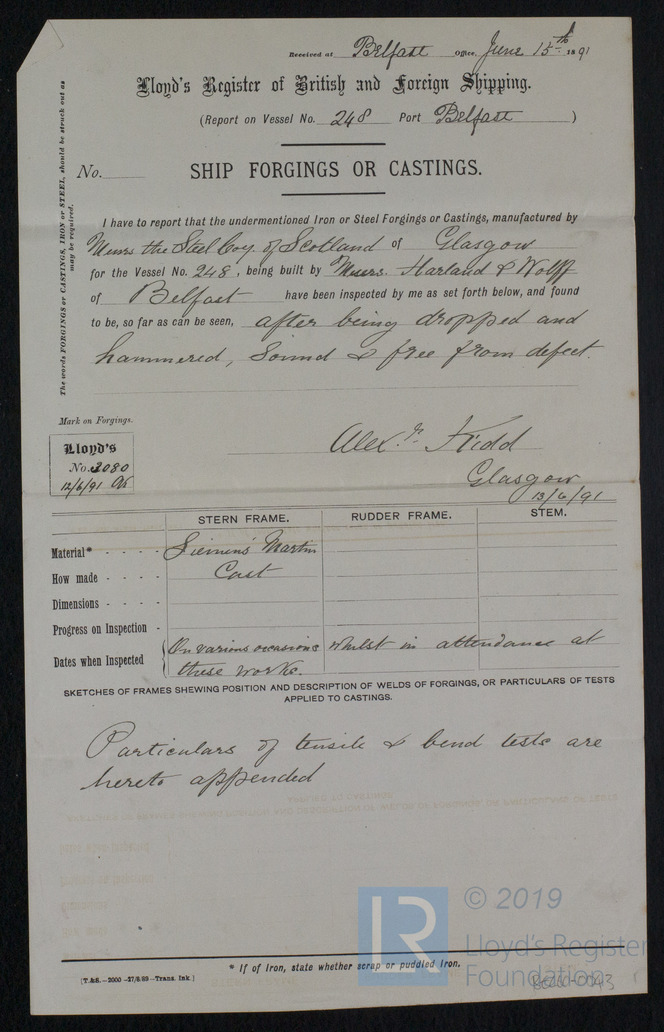 Received at Belfast Office, June 15th 1891
Lloyd's Register of British and Foreign Shipping.
(Report on Vessel No. 248 Port Belfast )
No.
SHIP FORGINGS OR CASTINGS.
The words FORGINGS or CASTINGS, IRON or STEEL, should be struck out as
may be required.
I have to report that the undermentioned Iron or Steel Forgings or Castings, manufactured by
Messrs the Steel Coy. of Scotland of Glasgow
for the Vessel No. 248, being built by Messrs. Harland & Wolff
of Belfast have been inspected by me as set forth below, and found
to be, so far as can be seen, after being dropped and
hammered, Sound & free from defect.
Mark on Forgings.
Lloyd's
No. 3080
12/6/91
Alexr. Kidd
Glasgow
13/6/91
STERN FRAME. RUDDER FRAME. STEM.
Material* - - - - Siemens Martin
How made - - - - Cast
Dimensions - - - -
Progress on Inspection -
Dates when Inspected { On various occasions whilst in attendance at
these works.
SKETCHES OF FRAMES SHEWING POSITION AND DESCRIPTION OF WELDS OF FORGINGS, OR PARTICULARS OF TESTS
APPLIED TO CASTINGS.
Particulars of tensile & bend tests are
hereto appended
* If of Iron, state whether scrap or puddled Iron.
(T.&S.—2000 —27/8/89—Trans. Ink.)
LR
© 2019
Lloyd's Register
Foundation